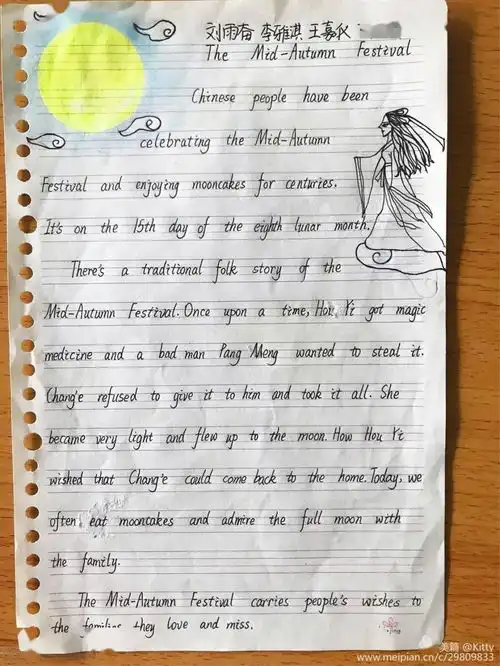 刘雨春 李雅淇 王嘉仪
The Mid-Autumn Festival
Chinese people have been
celebrating the Mid-Autumn
Festival and enjoying mooncakes for centuries.
It's on the 15th day of the eighth lunar month.
There's a traditional folk story of the
Mid-Autumn Festival. Once upon a time, Hou Yi got magic
medicine and a bad man Pang Meng wanted to steal it.
Chang'e refused to give it to him and took it all. She
became very light and flew up to the moon. How Hou Yi
wished that Chang'e could come back to the home. Today, we
often eat mooncakes and admire the full moon with
the family.
The Mid-Autumn Festival carries people's wishes to
the families they love and miss.
美篇 @Kitty
www.meipian.cn/c/29809833